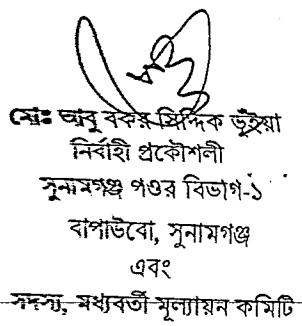 মোঃ আবু বকর সিদ্দিক ভূঁইয়া
নির্বাহী প্রকৌশলী
সুনামগঞ্জ পওর বিভাগ-১
বাপাউবো, সুনামগঞ্জ
এবং
সদস্য, মধ্যবর্তী মূল্যায়ন কমিটি